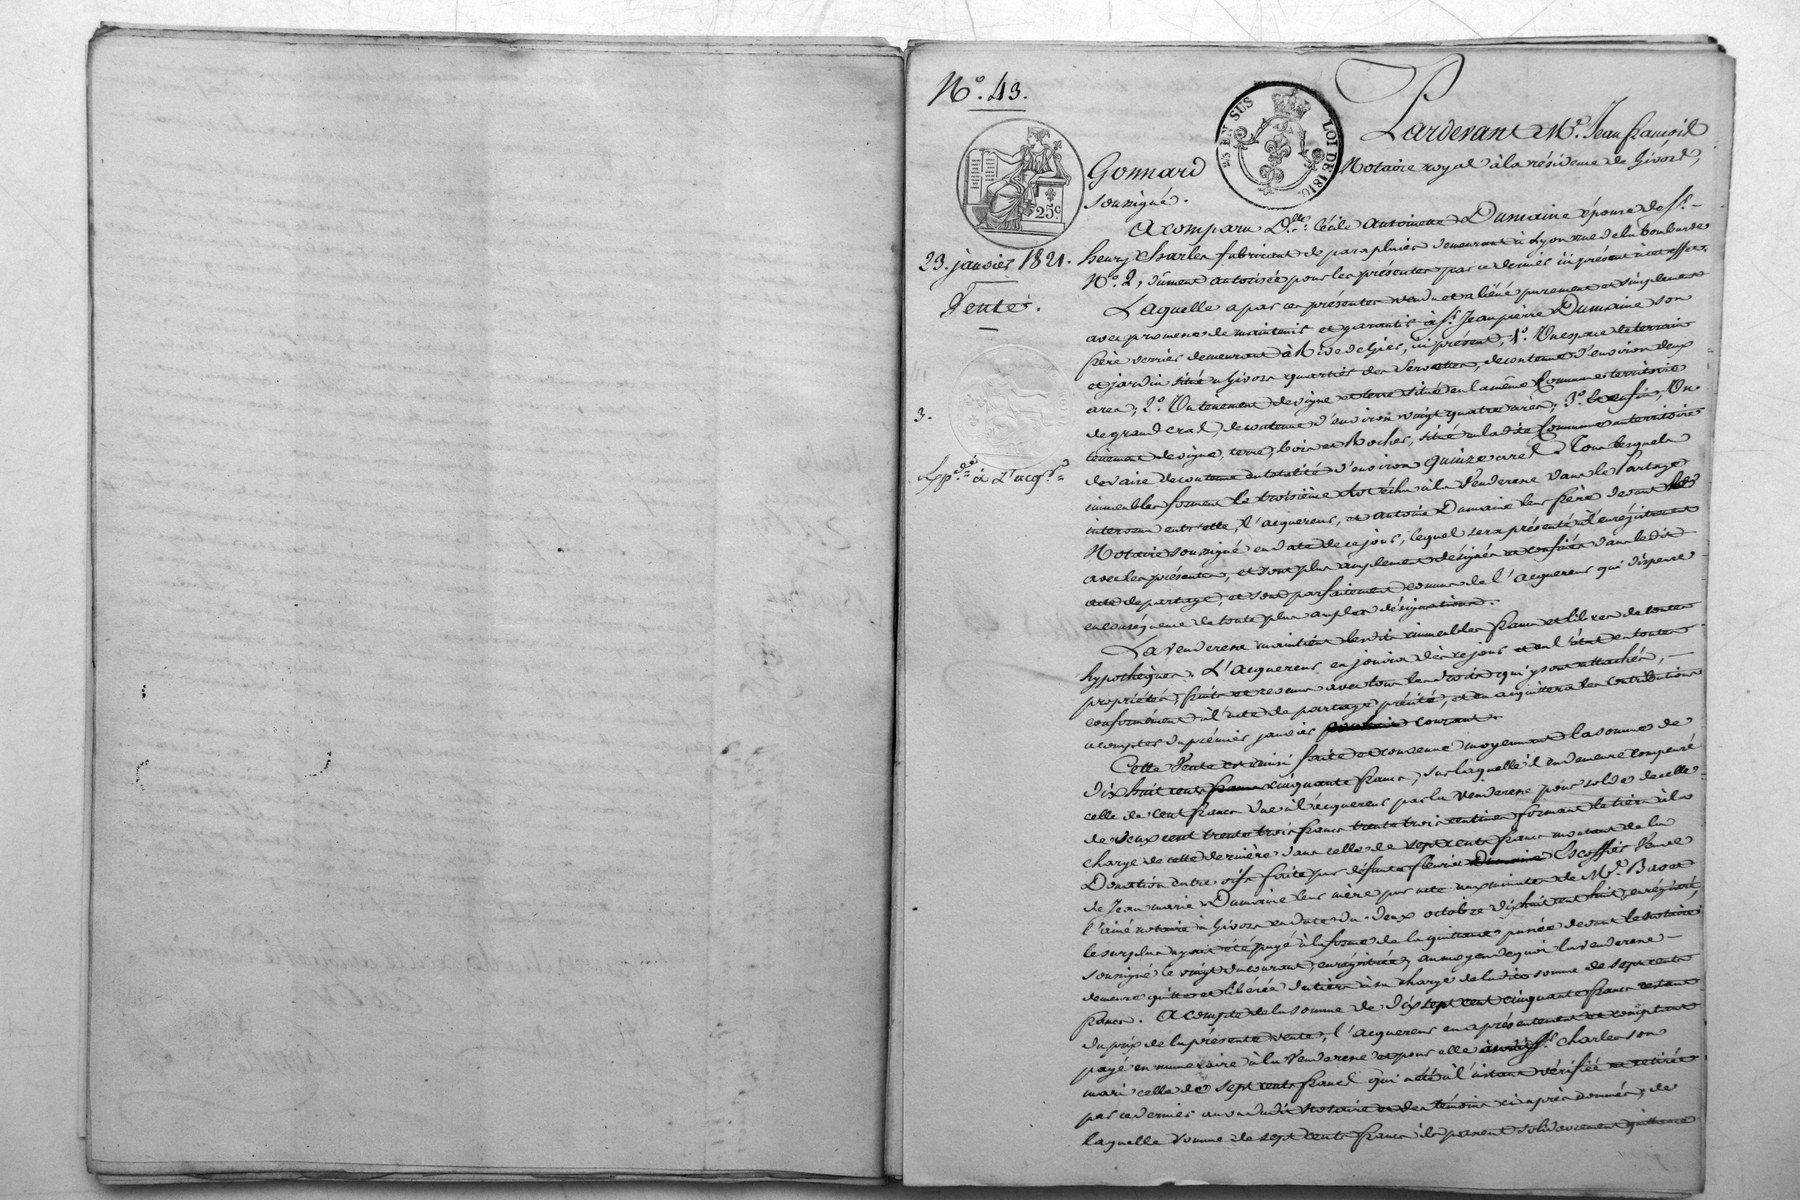 N.° 43.
25 EN SUS
LOI DE 1816.
25c
23. janvier 1821.
Vente.
3.
Exp.
Pardevant M.e Jean françois
Gonnard Notaire royal à la résidence de Givors,
soussigné.
A comparu D.lle Cécile Antoinette Dumaine épouse de S.r
henry Charles fabricant de parapluies demeurant à Lyon rue de la
N.° 2, dument autorisée pour les présentes par ce dernier ici présent à cet effet.
Laquelle a par ces présentes vendu et aliéné purement et simplement
avec promesse de maintenir et garantir à S.r Jean pierre Dumaine son
frère verrier demeurant à Rive de gier, ici présent, 1.° Un espace de terrain
et jardin situé à Givors quartier des de contenue d'environ deux
ares; 2.° Un tènement de vigne et terre situé en la même Commune territoire
de grand Cral, de contenue d'environ vingt quatre ares; 3.° et enfin, Un
tènement de vigne, terre, bois et Rocher, situé en ladite Commune au territoire
de contenue en totalité d'environ quinze ares. Tous lesquels
immeubles forment le troisième lot échu à la Venderesse dans le Partage
intervenu entr'elle, l'acquereur, et Antoine Dumaine leur frère devant le
Notaire soussigné en date de ce jour, lequel sera présenté à l'enregistrement
avec les présentes, et sont plus amplement désignés et confinés dans ledit
acte de partage, et sont parfaitement connus de l'acquereur qui dispense
en conséquence de toute plus ample désignation.
La venderesse maintient lesdits immeubles francs et libres de toutes
hypothèques. L'acquereur en jouira dès ce jour et en l'état en toutes
propriétés, fruits et revenus avec tous les droits qui y sont attachés,
conformément à l'acte de partage précité, et en acquittera les contributions
à compter du premier janvier courant.
Cette Vente est ainsi faite et convenue moyennant la somme de
dix huit cents cinquante francs, sur laquelle il en demeure compensé
celle de cent francs due à l'acquereur par la venderesse pour solde de celle
de deux cent trente trois francs trente trois centimes formant le tiers à la
charge de cette dernière dans celle de sept cents francs montant de la
Donation entre vifs faite par défunte fleurie Escoffier Veuve
de Jean marie Dumaine leur mère par acte aux minutes de M.e
l'ainé notaire à Givors en date du deux octobre dix huit cent huit, enregistré,
le surplus ayant été payé à la forme de la quittance passée devant le notaire
soussigné le vingt du courant, enregistrée, au moyen de quoi la venderesse
demeure quitte et libérée du tiers à sa charge de ladite somme de sept cents
francs. A compte de la somme de dix sept cent cinquante francs restant
du prix de la présente vente, l'acquereur en a présentement et comptant
payé en numéraire à la Venderesse et pour elle audit S.r Charles son
mari celle de sept cents francs qui a été à l'instant vérifiée et retirée
par ce dernier au vu dudit notaire et des témoins ci après nommés, de
laquelle somme de sept cents francs ils passent solidairement quittance